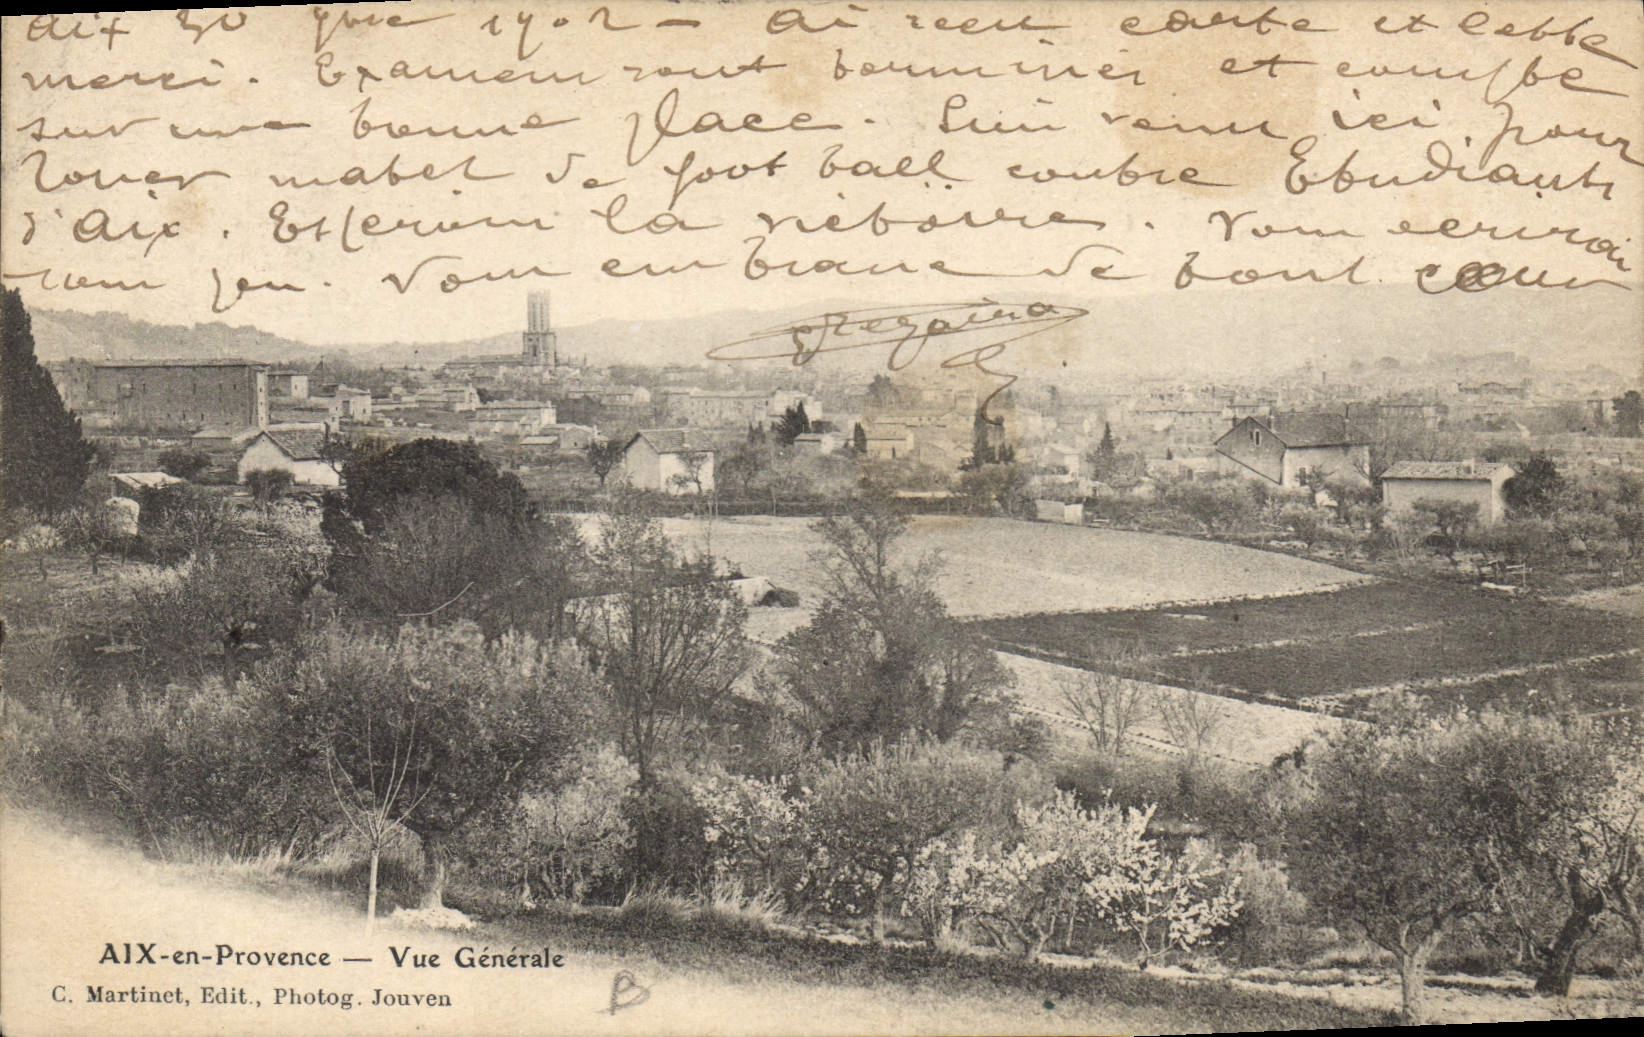 Aix 30 9bre 1902 – Ai reçu carte et lettre
merci. Examens sont terminés et compte
sur une bonne place. Suis venu ici pour
jouer match de foot ball contre Etudiants
d'Aix. Espérons la victoire. Vous écrirai
sous peu. Vous embrasse de tout cœur
AIX-en-Provence — Vue Générale
C. Martinet, Edit., Photog. Jouven
B